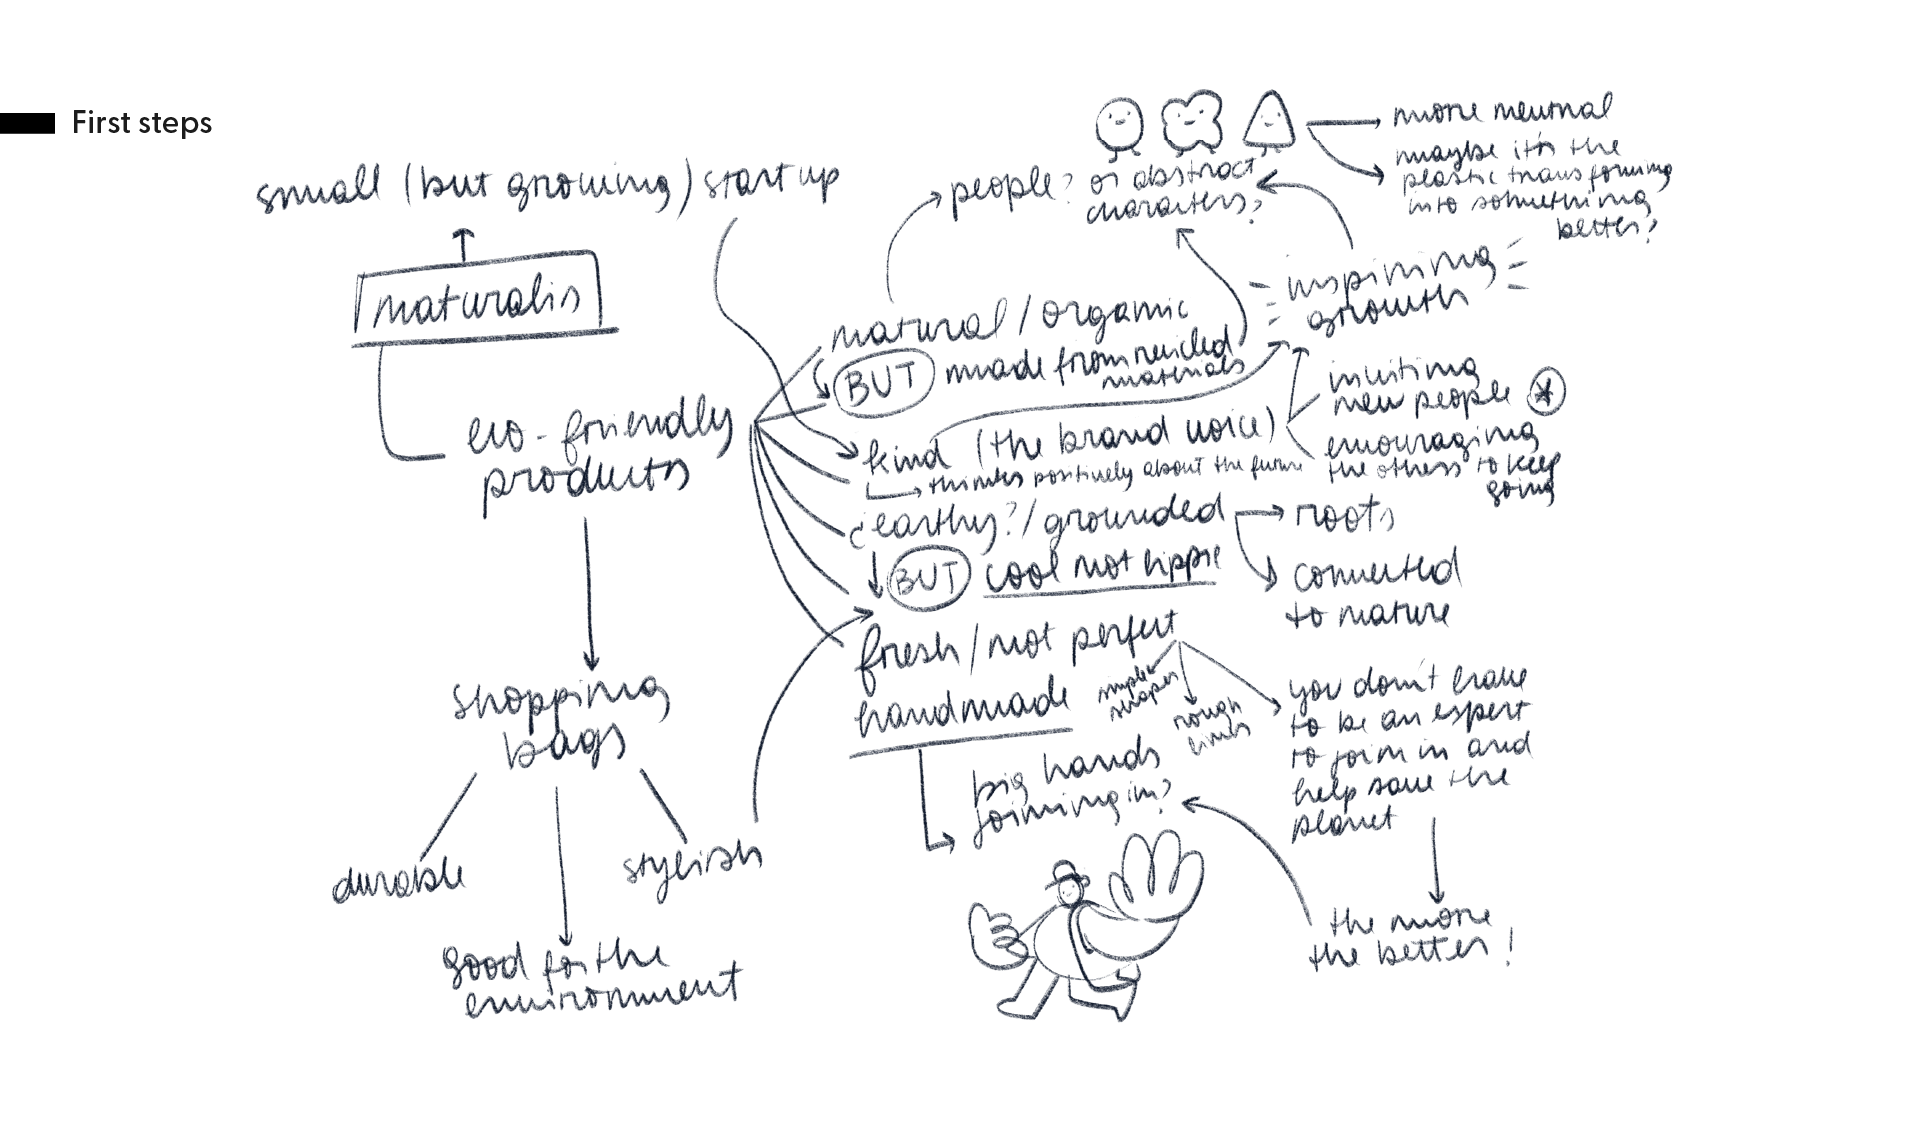 First steps
small (but growing) start up
naturalis
eco-friendly
products
shopping
bags
durable
good for the
environment
stylish
people? or abstract
characters?
more neutral
maybe it's the
plastic transforming
into something
better?
natural / organic
BUT made from recicled
materials
inspiring
growth
kind (the brand voice)
thinks positively about the future
inviting
new people *
encouraging
the others to keep
going
earthy? / grounded
BUT cool not hippie
roots
connected
to nature
fresh / not perfect
handmade
simple
shapes
rough
lines
you don't have
to be an expert
to join in and
help save the
planet
big hands
joining in?
the more
the better!